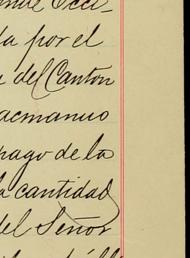 la por el
del Canton
acmanuo
pago de la
la cantidad
del Señor